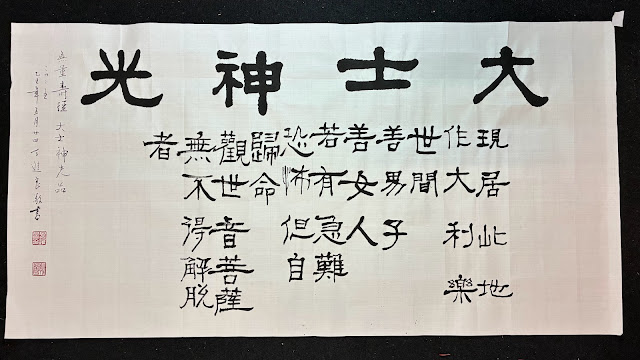 大士神光
現居此地
作大利樂
世間
善男子
善女人
若有急難
恐怖但自
歸命
觀世音菩薩
無不得解脫
者
无量壽經 大士神光品
年五月廿 書